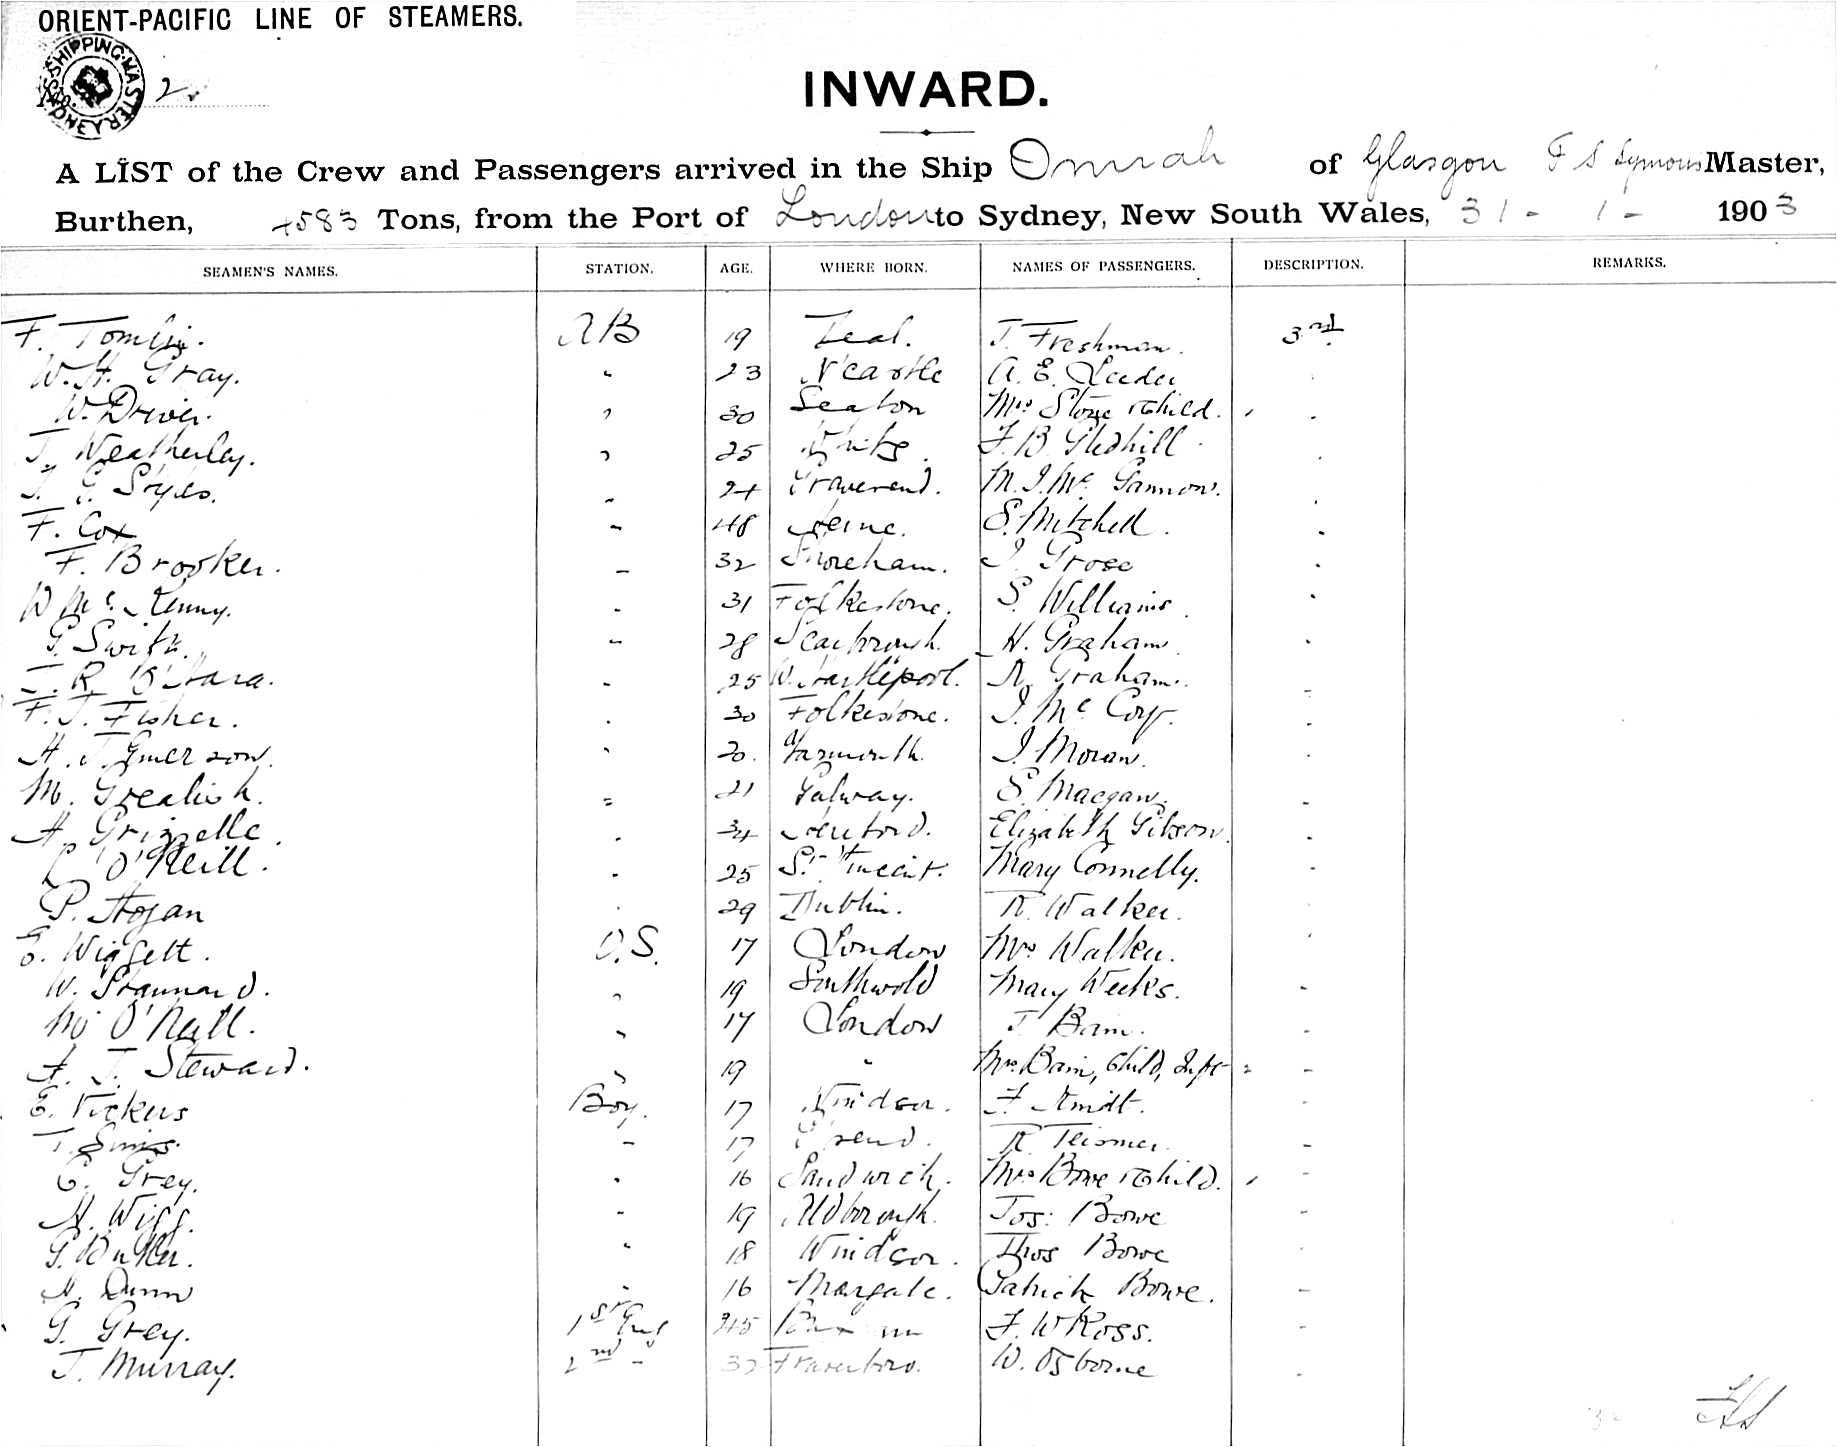 ORIENT-PACIFIC LINE OF STEAMERS.
SHIPPING MASTER SYDNEY
No. 2.
INWARD.
A LIST of the Crew and Passengers arrived in the Ship Omrah of Glasgow F S Symons Master,
Burthen, 4583 Tons, from the Port of London to Sydney, New South Wales, 31 - 1 - 1903
SEAMEN'S NAMES. STATION. AGE. WHERE BORN. NAMES OF PASSENGERS. DESCRIPTION. REMARKS.
F. Tomlin. AB 19 J. Freshman. 3rd
W. H. Gray. " 23 N'castle A. E. Leeder
W. Driver. " 30 Seaton Mrs Stone & Child. "
J. Weatherley. " 25 F. B. Gledhill "
J. G. Styles. " 24 Gravesend. M. J. Mc Gannon. "
F. Cox " 48 Herne. S. Mitchell. "
F. Brooker. " 32 Shoreham. J. Grose "
W Mc Kenny. " 31 Folkestone. S. Williams "
G. Swift. " 28 Scarborough. H. Graham "
J. R. O'Hara. " 25 W. Hartlepool. A. Graham. "
F. J. Fisher. " 30 Folkestone. J. Mc Coy. "
H. J. Emerson. " 20. Yarmouth. J. Moran. "
M. Grealish. " 21 Galway. S. Macgaw. "
A. Grizzelle. " 34 Hertford. Elizabeth Gibson. "
O'Neill. " 25 St Vincent. Mary Connelly. "
P. Hogan " 29 Dublin. R. Walker. "
E. Wiggett. O.S. 17 London Mrs Walker. "
W. Stannard. " 19 Southwold Mary Weeks. "
M O'Neill. " 17 London J Bain. "
A. J. Steward. " 19 " Mrs Bain, Child, Inft "
E. Vickers Boy. 17 Windsor. F. "
T. Sims. " 17 R. "
C. Grey. " 16 Sandwich. Mrs Bowe & Child. "
H. Wigg. " 19 Aldborough. Jos: Bowe "
G. Butler. " 18 Windsor. Thos Bowe "
A. Dunn " 16 Margate. Patrick Bowe. "
G. Grey. 1st 45 F. W Ross. "
J. Murray. 2nd " 32 W. Osborne "